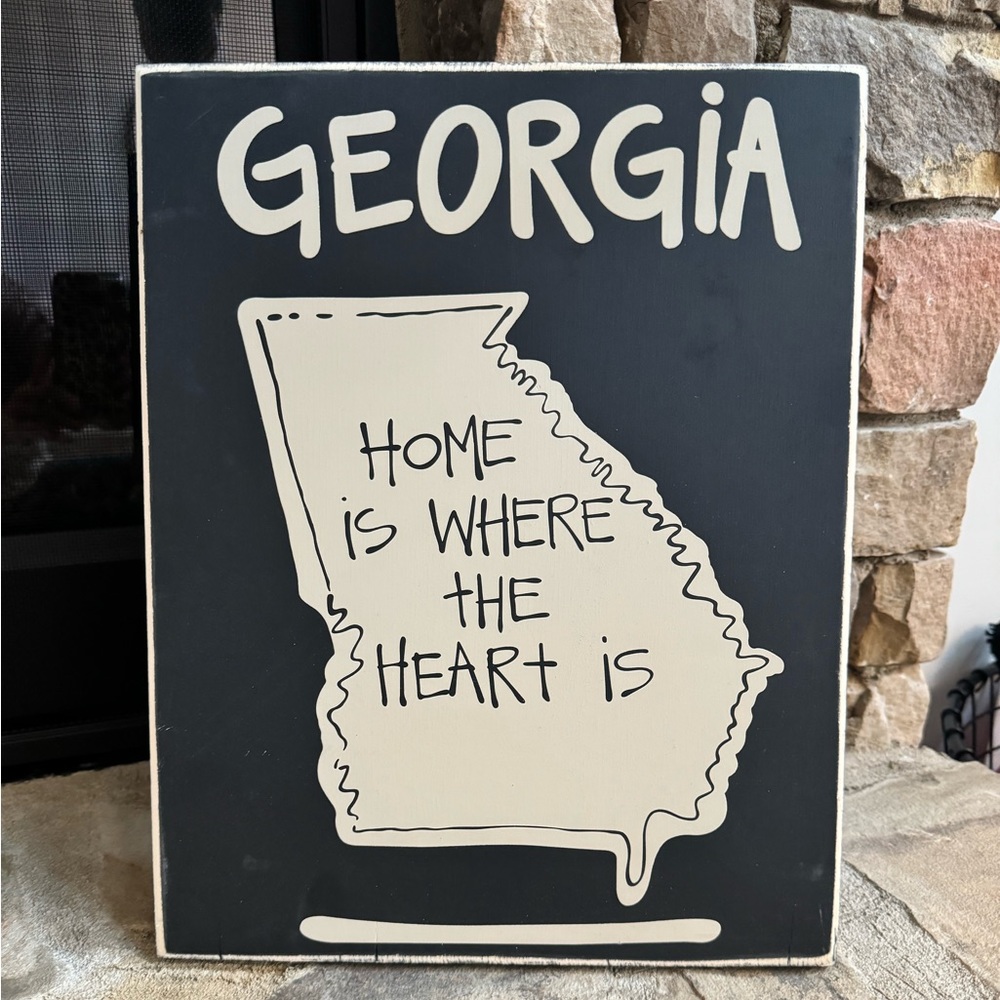 GEORGiA
HoME
iS WHERE
tHE
HEARt iS